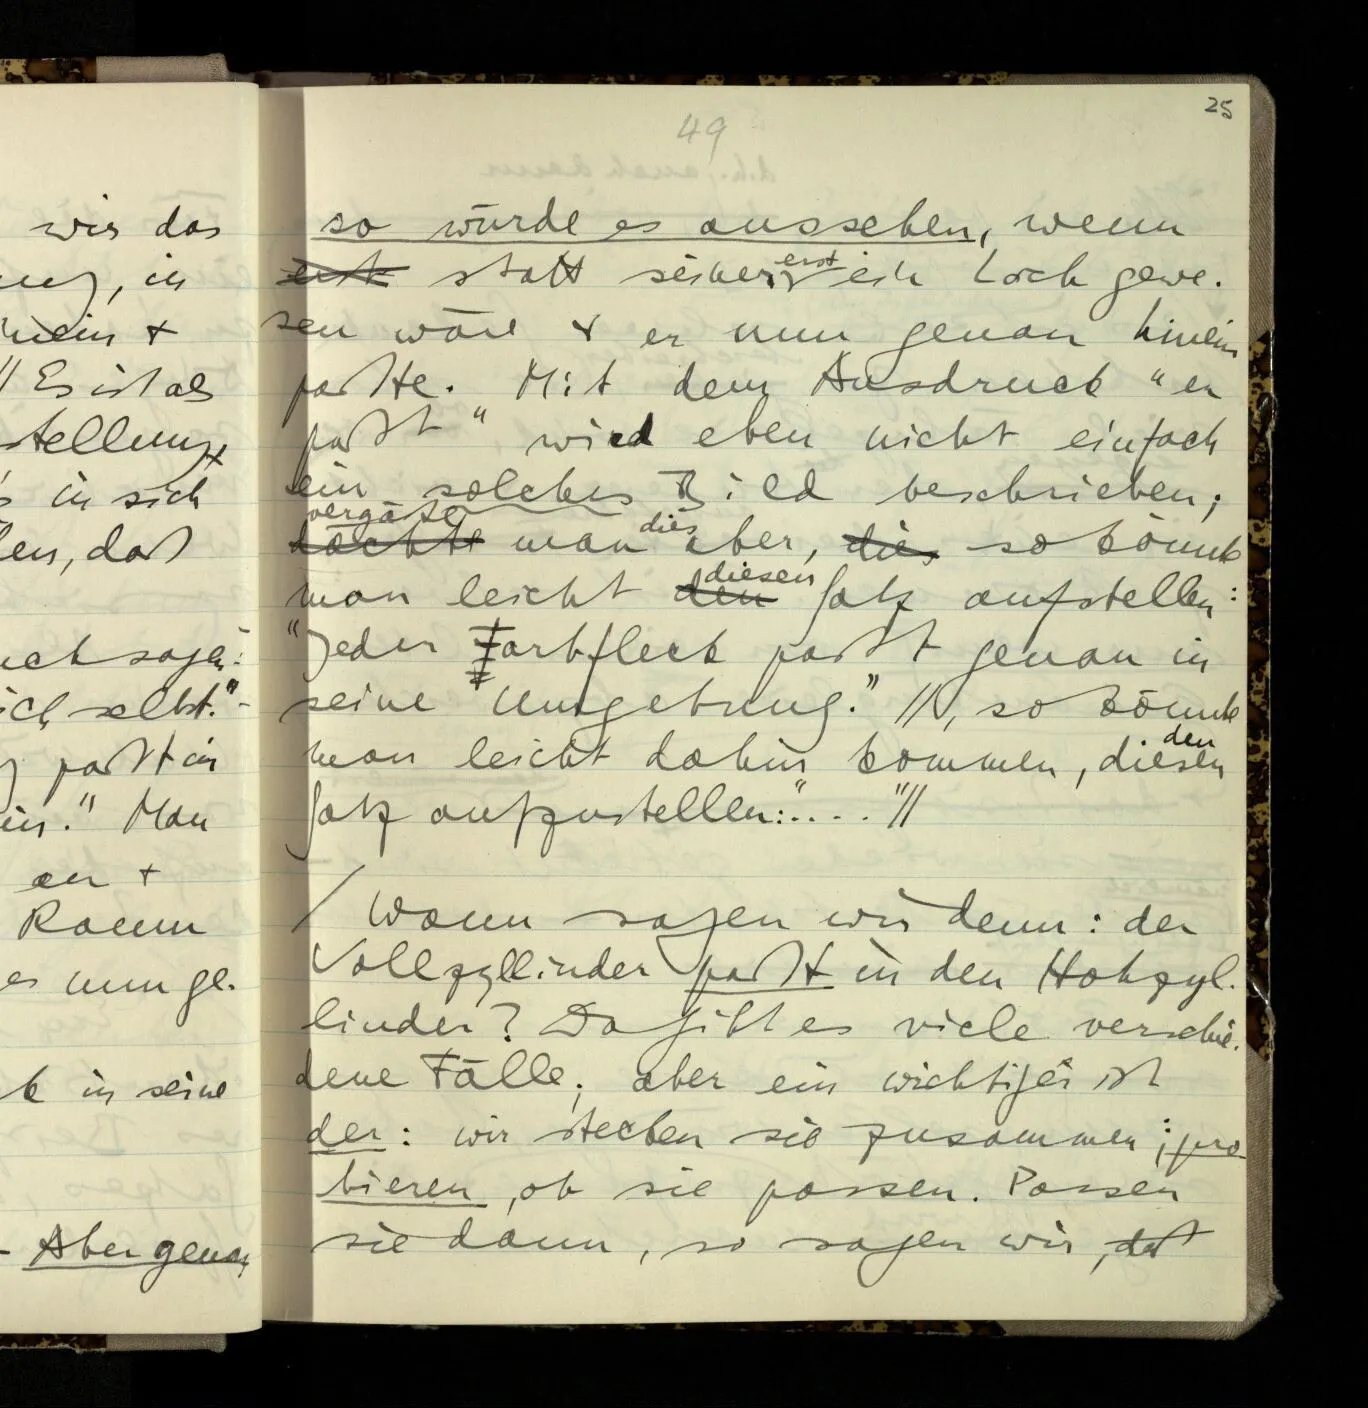 wir das
in
+
Es ist als
stellung
in sich
daß
sich selbst."-
paßt in
Man
an +
Raum
es nun ge-
in seine
- Aber genau
25
49
so würde es aussehen, wenn
erst statt seiner erst ein Loch gewe-
sen wäre & er nun genau hinein
paßte. Mit dem Ausdruck "er
paßt" wird eben nicht einfach
ein solches Bild beschrieben;
vergäße dies
dächte man aber, dies so könnte
diesen
man leicht den Satz aufstellen:
"Jeder Farbfleck paßt genau in
seine Umgebung." //, so könnte
den
man leicht dahin kommen, diesen
Satz aufzustellen:"...."//
/ Wann sagen wir denn: der
Vollzyllinder paßt in den Hohlzyl-
linder? Da gibt es viele verschie-
dene Fälle; aber ein wichtiger ist
der: wir stecken sie zusammen; pro
bieren, ob sie passen. Passen
sie dann, so sagen wir, daß